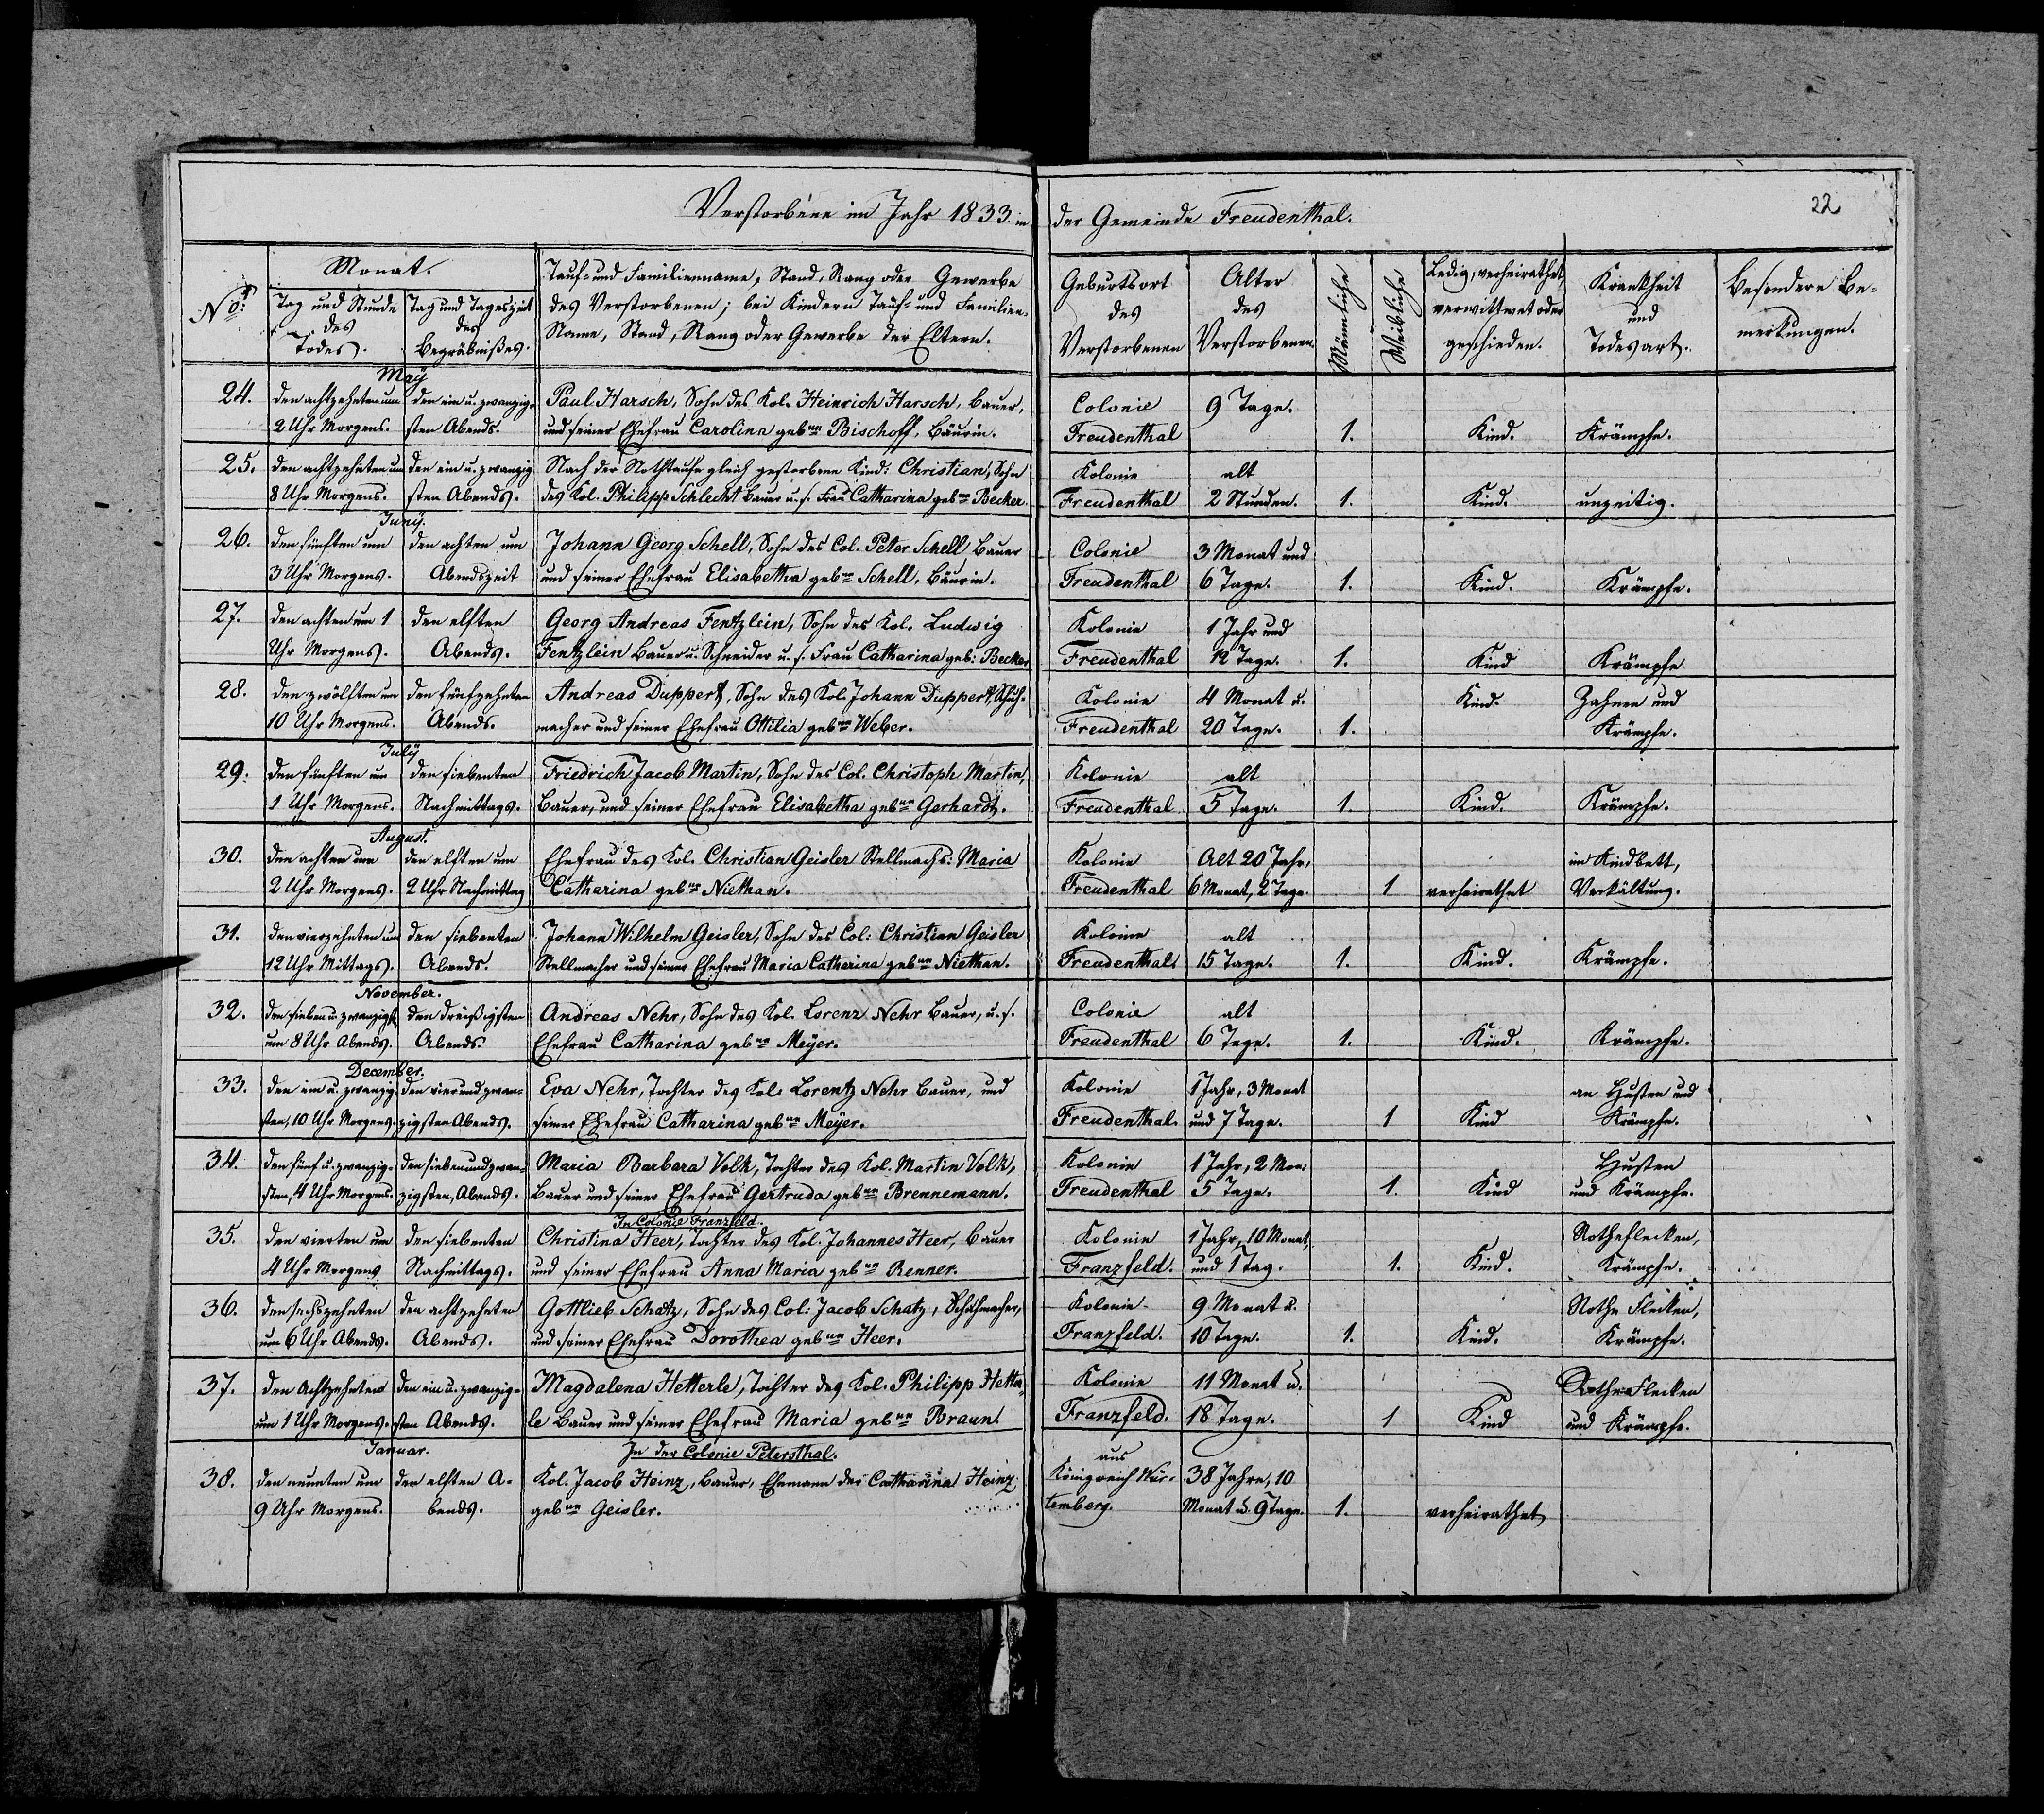 Verstorbene im Jahr 1833. in der Gemeinde Freudenthal.
22
No:
Monat.
Tag und Stunde des Todes.
Tag und Tageszeit des Begräbnißes.
Tauf- und Familienname, Stand, Rang oder Gewerbe
des Verstorbenen; bei Kindern Tauf- und Familien-
Name, Stand, Rang oder Gewerbe der Eltern.
Geburtsort des Verstorbenen
Alter des Verstorbenen.
Männliche
Weibliche
Ledig, verheirathet, verwittwet oder geschieden.
Krankheit und Todesart.
Besondere Be-
merkungen.
May
24. den achtzehnten um den ein u. zwanzig- Paul Harsch, Sohn des Kol. Heinrich Harsch, Bauer, Colonie 9 Tage.
2 Uhr Morgens. sten Abends. und seiner Ehefrau Carolina gebne Bischoff, Bäurin. Freudenthal 1. Kind. Krämpfe.
25. den achtzehnten um den ein u. zwanzig Nach der Nothtaufe gleich gestorbene Kind: Christian, Sohn Kolonie alt
8 Uhr Morgens. sten Abends. des Kol. Philipp Schlecht Bauer u. s. Frau Catharina gebne Becker. Freudenthal 2 Stunden. 1. Kind. unzeitig.
Juny.
26. den fünften um den achten um Johann Georg Schell, Sohn des Col. Peter Schell Bauer Colonie 3 Monat und
3 Uhr Morgens. Abendszeit und seiner Ehefrau Elisabetha gebne Schell, Bäurin. Freudenthal 6 Tage. 1. Kind. Krämpfe.
27. den achten um 1 den elften Georg Andreas Fentzlein, Sohn des Kol. Ludwig Kolonie 1 Jahr und
Uhr Morgens. Abends. Fentzlein Bauer u. Schneider u. s. Frau Catharina geb: Becker Freudenthal 12 Tage. 1. Kind Krämpfe
28. den zwölften um den fünfzehnten Andreas Duppert, Sohn des Kol. Johann Duppert, Schuh- Kolonie 4 Monat u. Kind. Zahnen und
10 Uhr Morgens. Abends. macher und seiner Ehefrau Ottilia gebne Weber. Freudenthal 20 Tage. 1. Krämpfe.
July
29. den fünften um den siebenten Friedrich Jacob Martin, Sohn des Col. Christoph Martin, Kolonie alt
1 Uhr Morgens. Nachmittags. Bauer, und seiner Ehefrau Elisabetha gebne Gerhardt. Freudenthal 5 Tage. 1. Kind. Krämpfe.
August.
30. den achten um den elften um Ehefrau des Kol. Christian Geisler Stellmachs: Maria Kolonie Alt 20 Jahr, im Kindbett,
2 Uhr Morgens. 2 Uhr Nachmittag Catharina gebne Niethan. Freudenthal 6 Monat, 2 Tage. 1 verheirathet Verkältung.
31. den vierzehnten um den siebenten Johann Wilhelm Geisler, Sohn des Col: Christian Geisler Kolonie alt
12 Uhr Mittags. Abends. Stellmacher und seiner Ehefrau Maria Catharina gebne Niethan. Freudenthal 15 Tage. 1. Kind. Krämpfe.
November.
32. den sieben u. zwanzigst den dreißigsten Andreas Nehr, Sohn des Kol. Lorenz Nehr Bauer, u. s. Colonie alt
um 8 Uhr Abends. Abends. Ehefrau Catharina gebne Meyer. Freudenthal 6 Tage. 1. Kind. Krämpfe.
December.
33. den ein u. zwanzig- den vierundzwan- Eva Nehr, Tochter des Kol. Lorentz Nehr Bauer, und Kolonie 1 Jahr, 3 Monat an Husten und
sten, 10 Uhr Morgens. zigsten Abends. seiner Ehefrau Catharina gebne Meyer. Freudenthal. und 7 Tage. 1 Kind Krämpfe.
34. den fünf u. zwanzig- den siebenundzwan- Maria Barbara Volk, Tochter des Kol. Martin Volk, Kolonie 1 Jahr, 2 Mon: Husten
sten, 4 Uhr Morgens. zigsten, Abends. Bauer und seiner Ehefrau Gertruda gebne Brennemann. Freudenthal 5 Tage. 1. Kind und Krämpfe.
In Colonie Franzfeld.
35. den vierten um den siebenten Christina Heer, Tochter des Kol. Johannes Heer, Bauer Kolonie 1 Jahr, 10 Monat, Rotheflecken,
4 Uhr Morgens Nachmittags. und seiner Ehefrau Anna Maria gebne Renner. Franzfeld. und 1 Tag. 1. Kind. Krämpfe.
36. den sechszehnten den achtzehnten Gottlieb Schatz, Sohn des Col: Jacob Schatz, Schuhmacher, Kolonie 9 Monat u. Rothe Flecken,
um 6 Uhr Abends. Abends. und seiner Ehefrau Dorothea gebne Heer. Franzfeld. 10 Tage. 1. Kind. Krämpfe.
37. den Achtzehnten den ein u. zwanzig- Magdalena Hetterle, Tochter des Kol. Philipp Hetter- Kolonie 11 Monat u. Rothe Flecken
um 1 Uhr Morgens. sten Abends. le Bauer und seiner Ehefrau Maria gebne Braun. Franzfeld. 18 Tage. 1 Kind und Krämpfe.
Januar. In der Colonie Petersthal.
38. den neunten um den elften A- Kol. Jacob Heinz, Bauer, Ehemann der Catharina Heinz aus Königreich Wür- 38 Jahre, 10
9 Uhr Morgens. bends. gebne Geisler. temberg. Monat u. 9 Tage. 1. verheirathet